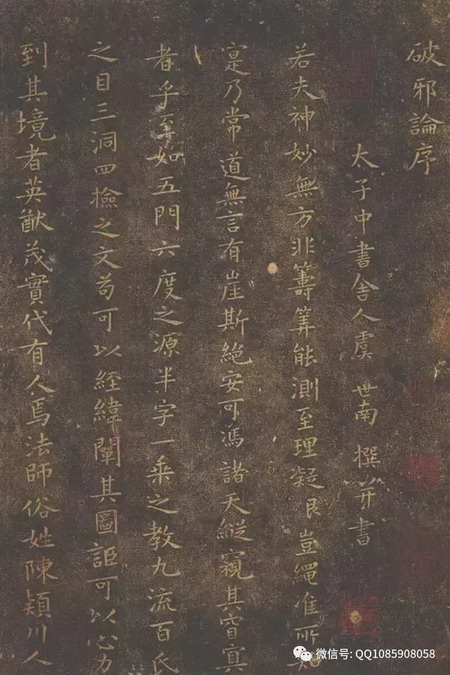 破邪論序
太子中書舍人虞世南撰并書
若夫神妙無方非籌筭能測至理凝豈繩准所知
寔乃常道無言有崖斯絕安可馮諸天縱窺其窅冥
者乎至如五門六度之源半字一乘之教九流百氏
之目三洞四撿之文苟可以經緯闡其圖詎可以心力
到其境者英猷茂實代有人焉法師俗姓陳穎川人
微信号: QQ1085908058